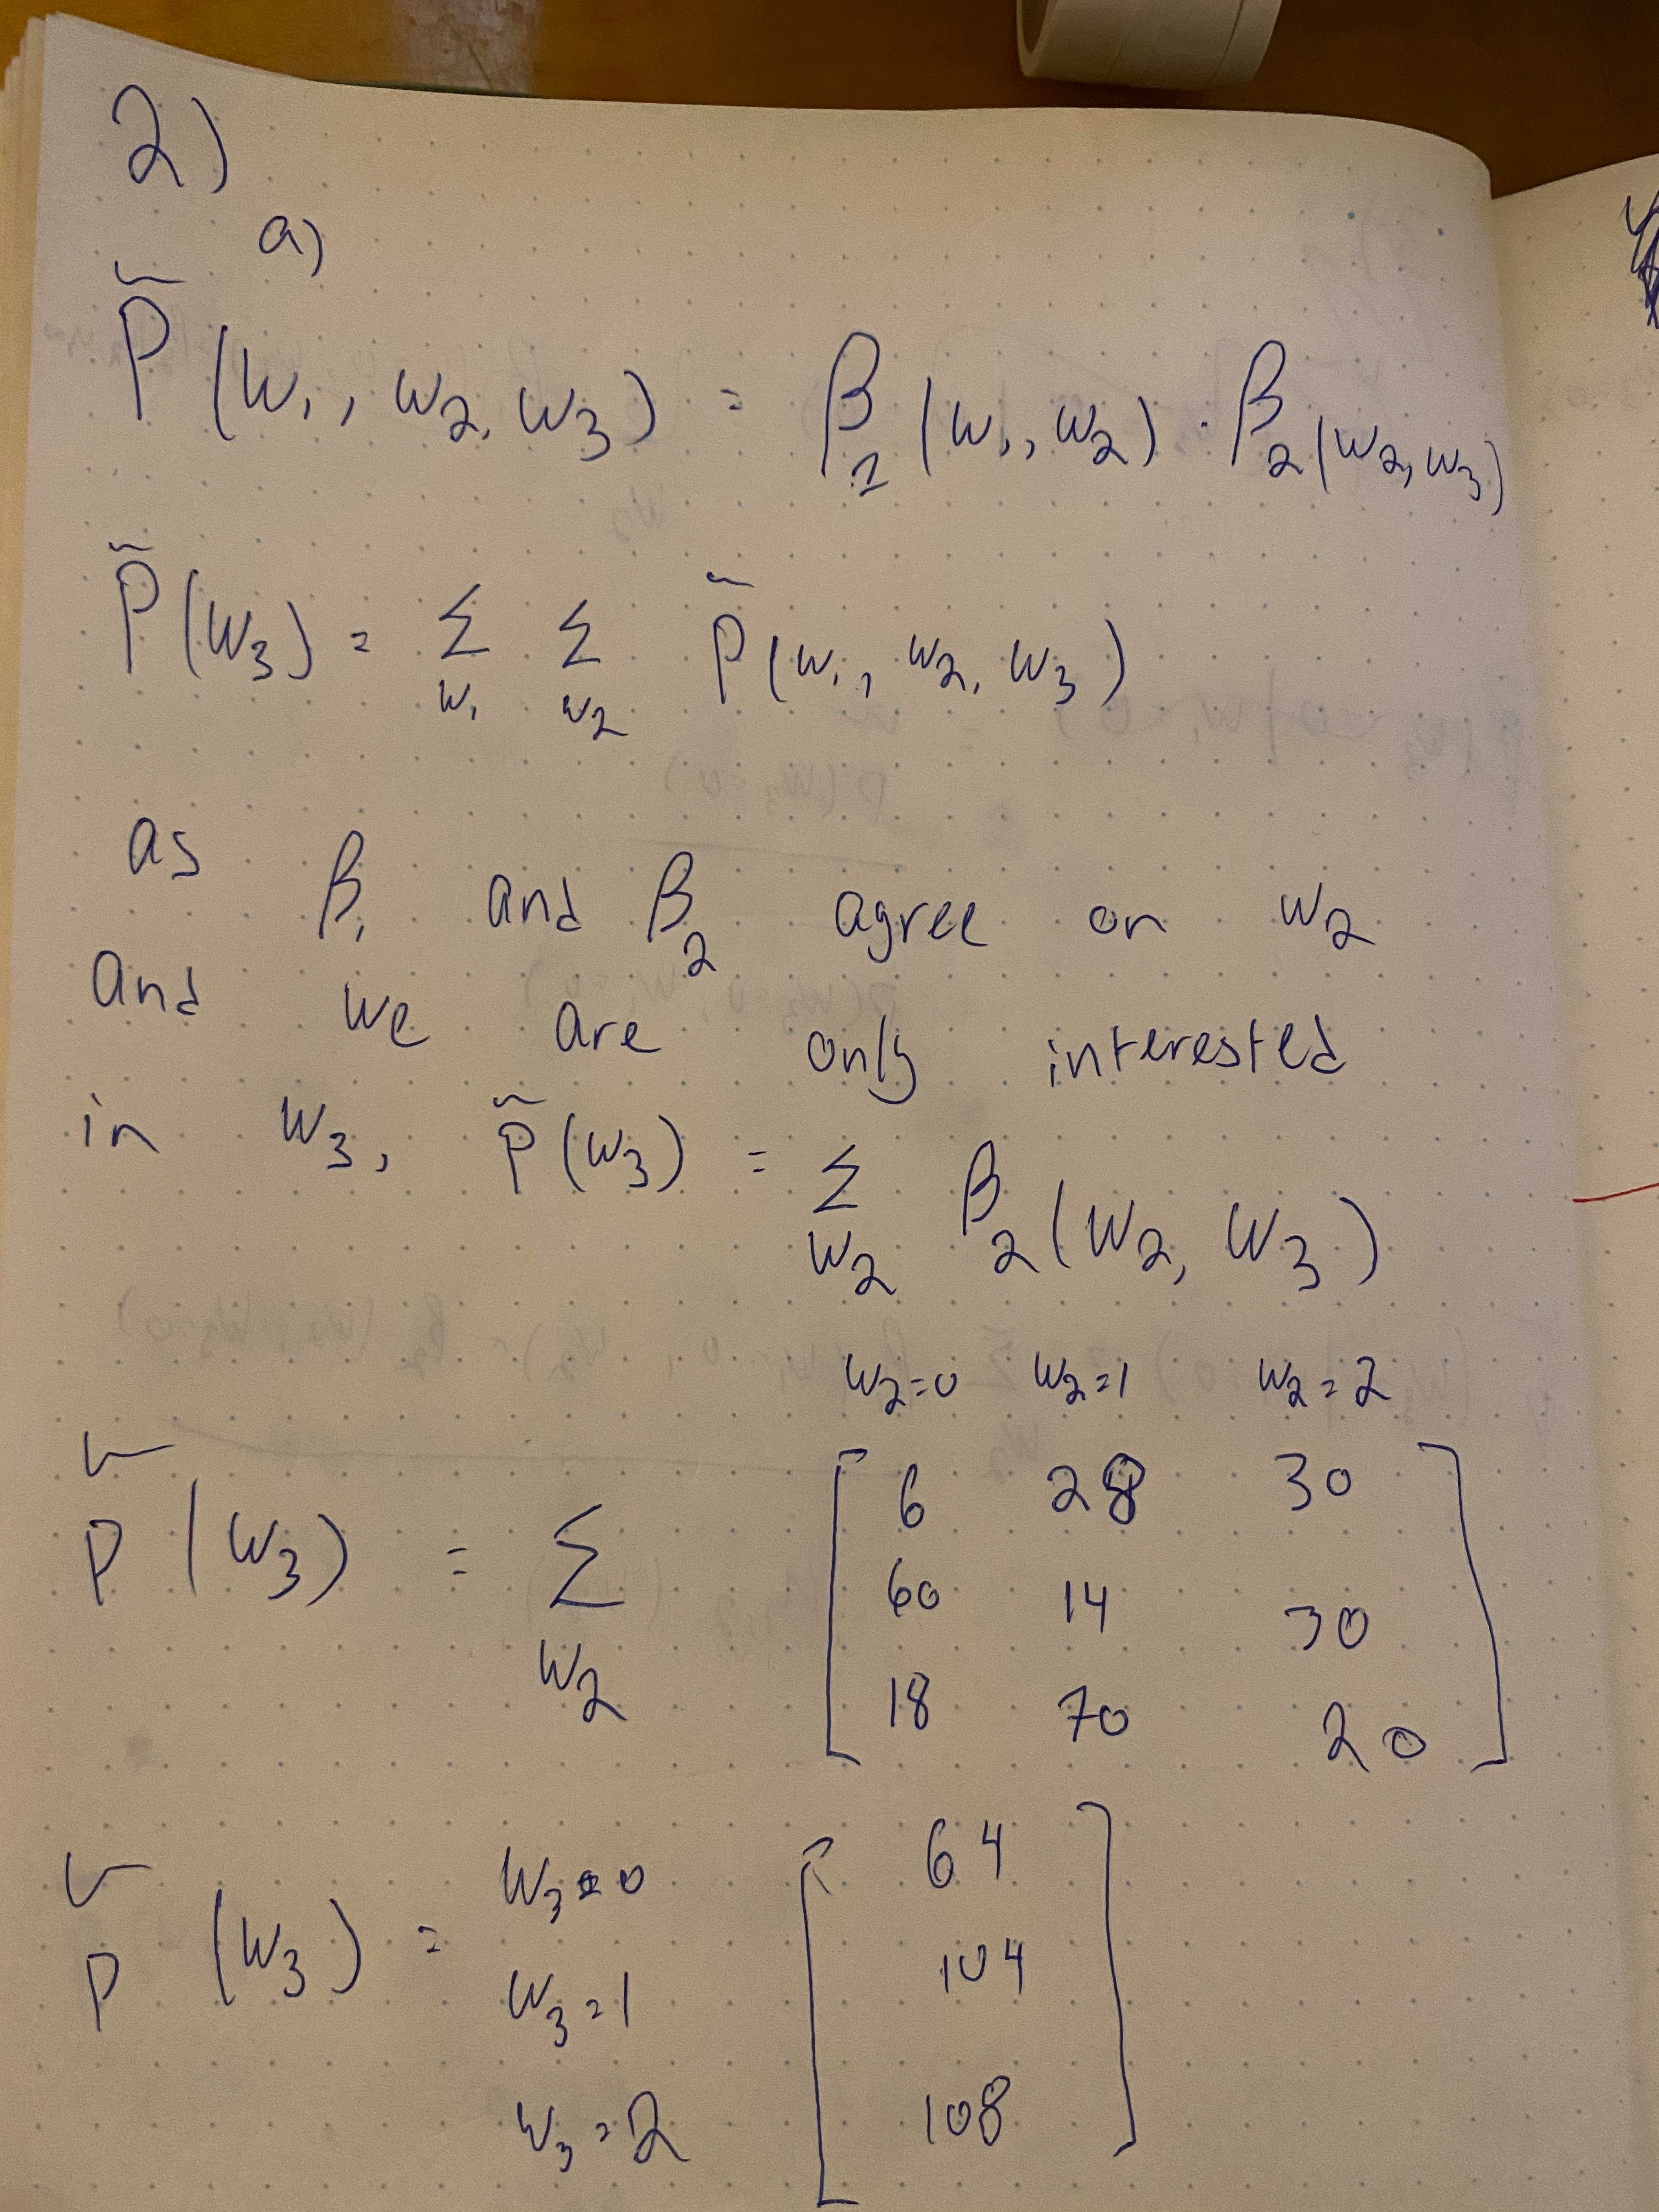 2)
a)
P̃(w₁, w₂, w₃) = β₁(w₁, w₂) · β₂(w₂, w₃)
P̃(w₃) = Σ_w₁ Σ_w₂ P̃(w₁, w₂, w₃)
as β₁ and β₂ agree on w₂
and we are only interested
in w₃, P̃(w₃) = Σ_w₂ β₂(w₂, w₃)
w₂=0 w₂=1 w₂=2
P̃(w₃) = Σ_w₂ [ 6 28 30
60 14 30
18 70 20 ]
P̃(w₃) = w₃=0 [ 64
w₃=1 104
w₃=2 108 ]